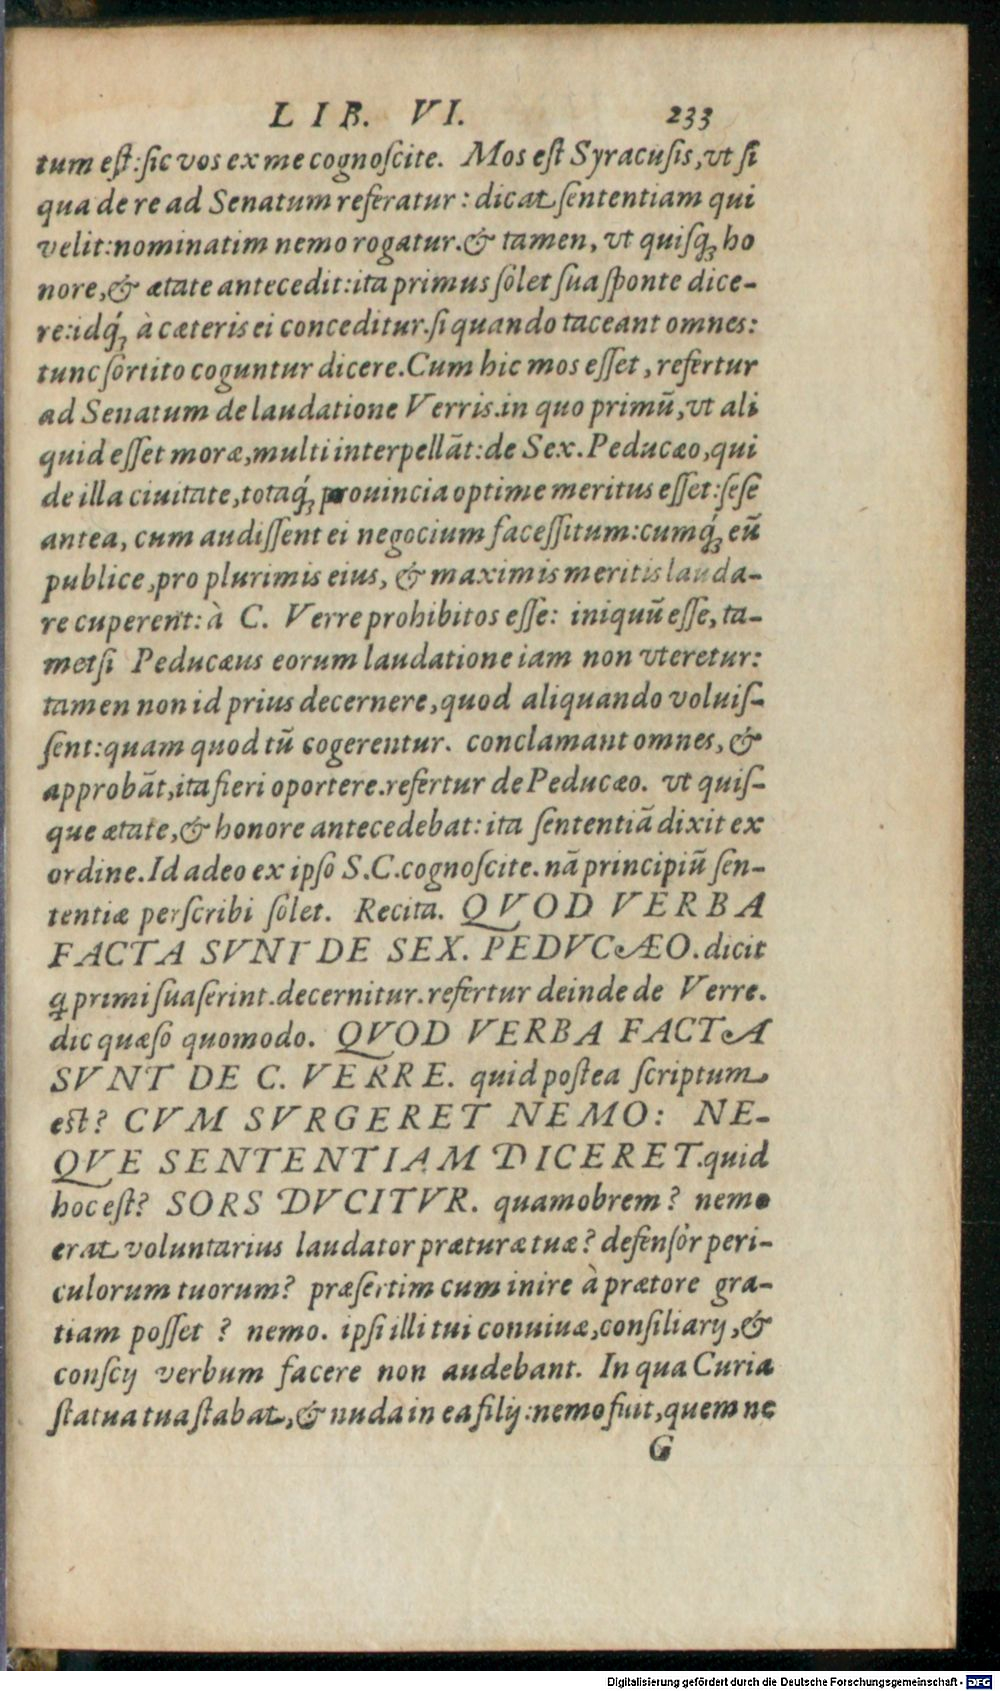 LIB. VI. 233
tum eſt:ſic vos ex me cognoſcite. Mos eſt Syracuſis, vt ſi
qua de re ad Senatum referatur: dicat ſententiam qui
velit:nominatim nemo rogatur.& tamen, vt quiſq́; ho
nore,& ætate antecedit:ita primus ſolet ſua ſponte dice-
re:idq́; à cæteris ei conceditur.ſi quando taceant omnes:
tunc ſortito coguntur dicere.Cum hic mos eſſet, refertur
ad Senatum de laudatione Verris.in quo primū, vt ali
quid eſſet moræ, multi interpellāt:de Sex. Peducæo, qui
de illa ciuitate, totaq́; prouincia optime meritus eſſet:ſeſe
antea, cum audiſſent ei negocium faceſſitum:cumq́; eū
publice, pro plurimis eius, & maximis meritis lauda-
re cuperent: à C. Verre prohibitos eſſe: iniquū eſſe, ta-
metſi Peducæus eorum laudatione iam non vteretur:
tamen non id prius decernere, quod aliquando voluiſ-
ſent:quam quod tū cogerentur. conclamant omnes, &
approbāt, ita fieri oportere.refertur de Peducæo. vt quiſ-
que ætate, & honore antecedebat: ita ſententiā dixit ex
ordine. Id adeo ex ipſo S.C.cognoſcite. nā principiū ſen-
tentiæ perſcribi ſolet. Recita. QVOD VERBA
FACTA SVNT DE SEX. PEDVCÆO. dicit
q̄ primi ſuaſerint.decernitur.refertur deinde de Verre.
dic quæſo quomodo. QVOD VERBA FACTA
SVNT DE C. VERRE. quid poſtea ſcriptum
eſt? CVM SVRGERET NEMO: NE-
QVE SENTENTIAM DICERET.quid
hoc eſt? SORS DVCITVR. quamobrem? nemo
erat voluntarius laudator præturæ tuæ? defenſor peri-
culorum tuorum? præſertim cum inire à prætore gra-
tiam poſſet ? nemo. ipſi illi tui conuiuæ, conſiliarij, &
conſcij verbum facere non audebant. In qua Curia
ſtatua tua ſtabat, & nuda in ea filij:nemo fuit, quem ne
G
Digitalisierung gefördert durch die Deutsche Forschungsgemeinschaft - DFG